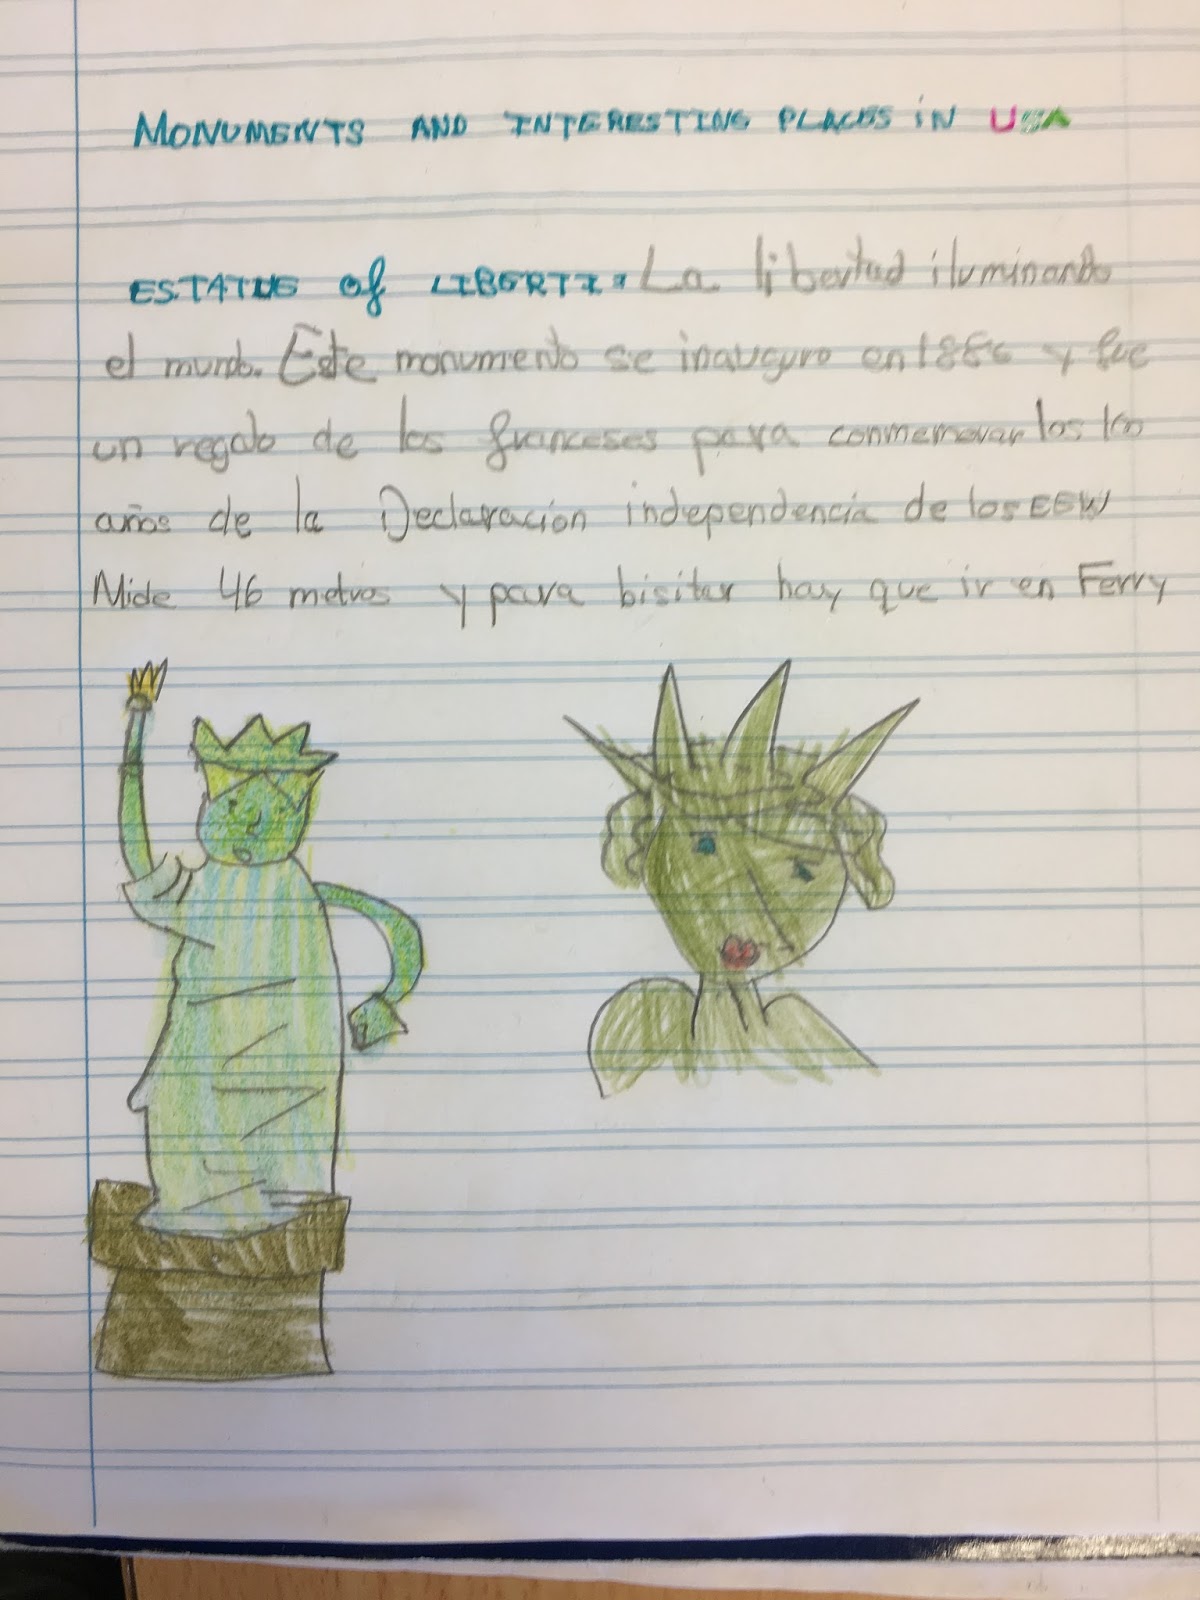 MONUMENTS AND INTERESTING PLACES iN USA
ESTATUE of LIBERTI: La libertad iluminando
el mundo. Este monumento se inauguro en 1886 y fue
un regalo de los franceses para conmemorar los 100
años de la Declaración independencia de los EEUU
Mide 46 metros y para bisitar hay que ir en Ferry